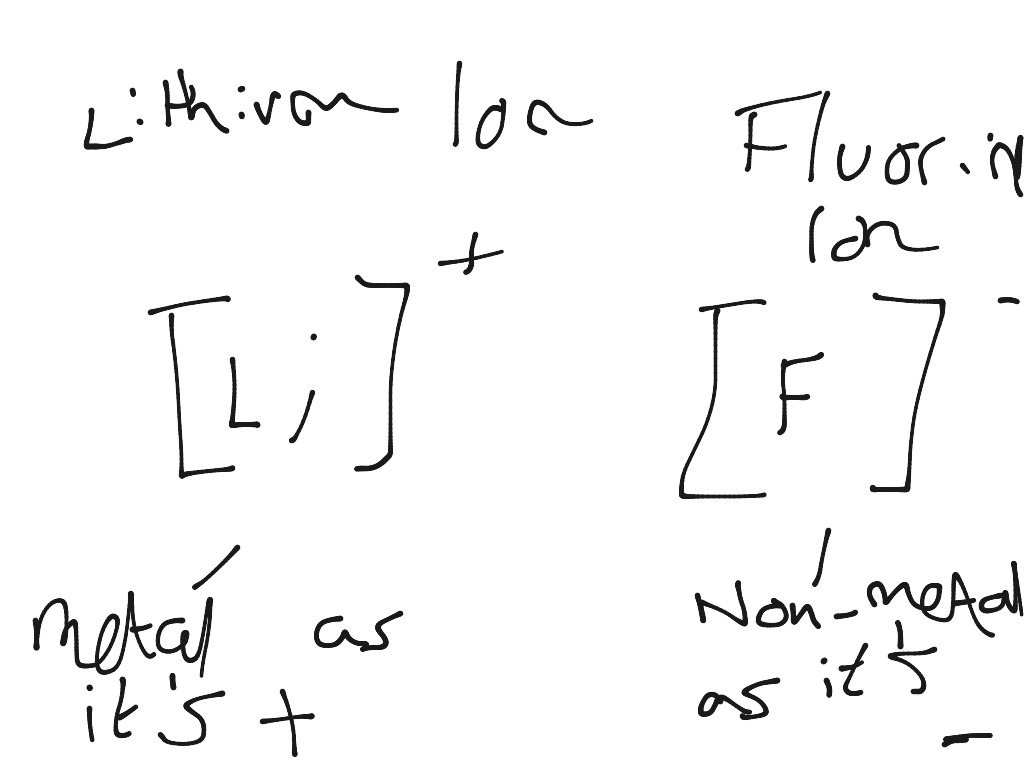 Lithium Ion
Fluorin
Ion
[Li]+
[F]-
Metal as
it's +
Non-metal
as it's
-